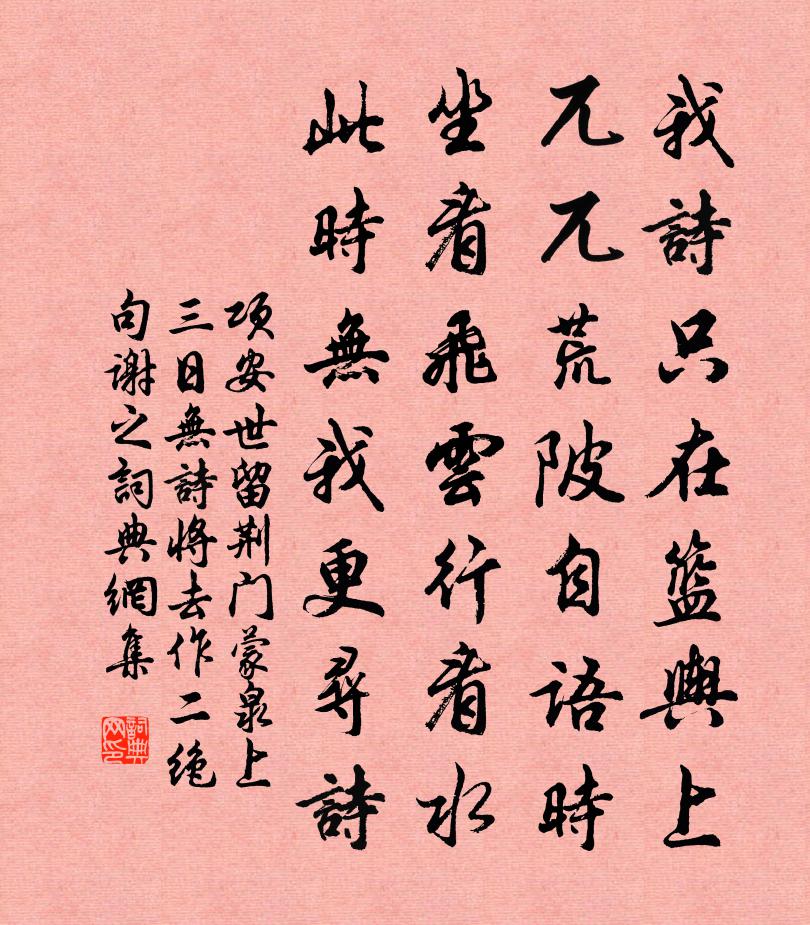 我詩只在籃輿上
兀兀荒陂自語時
坐看飛雲行看水
此時無我更尋詩
項安世留荆门蒙泉上
三日無詩将去作二绝
句謝之詞典網集
詞典網印